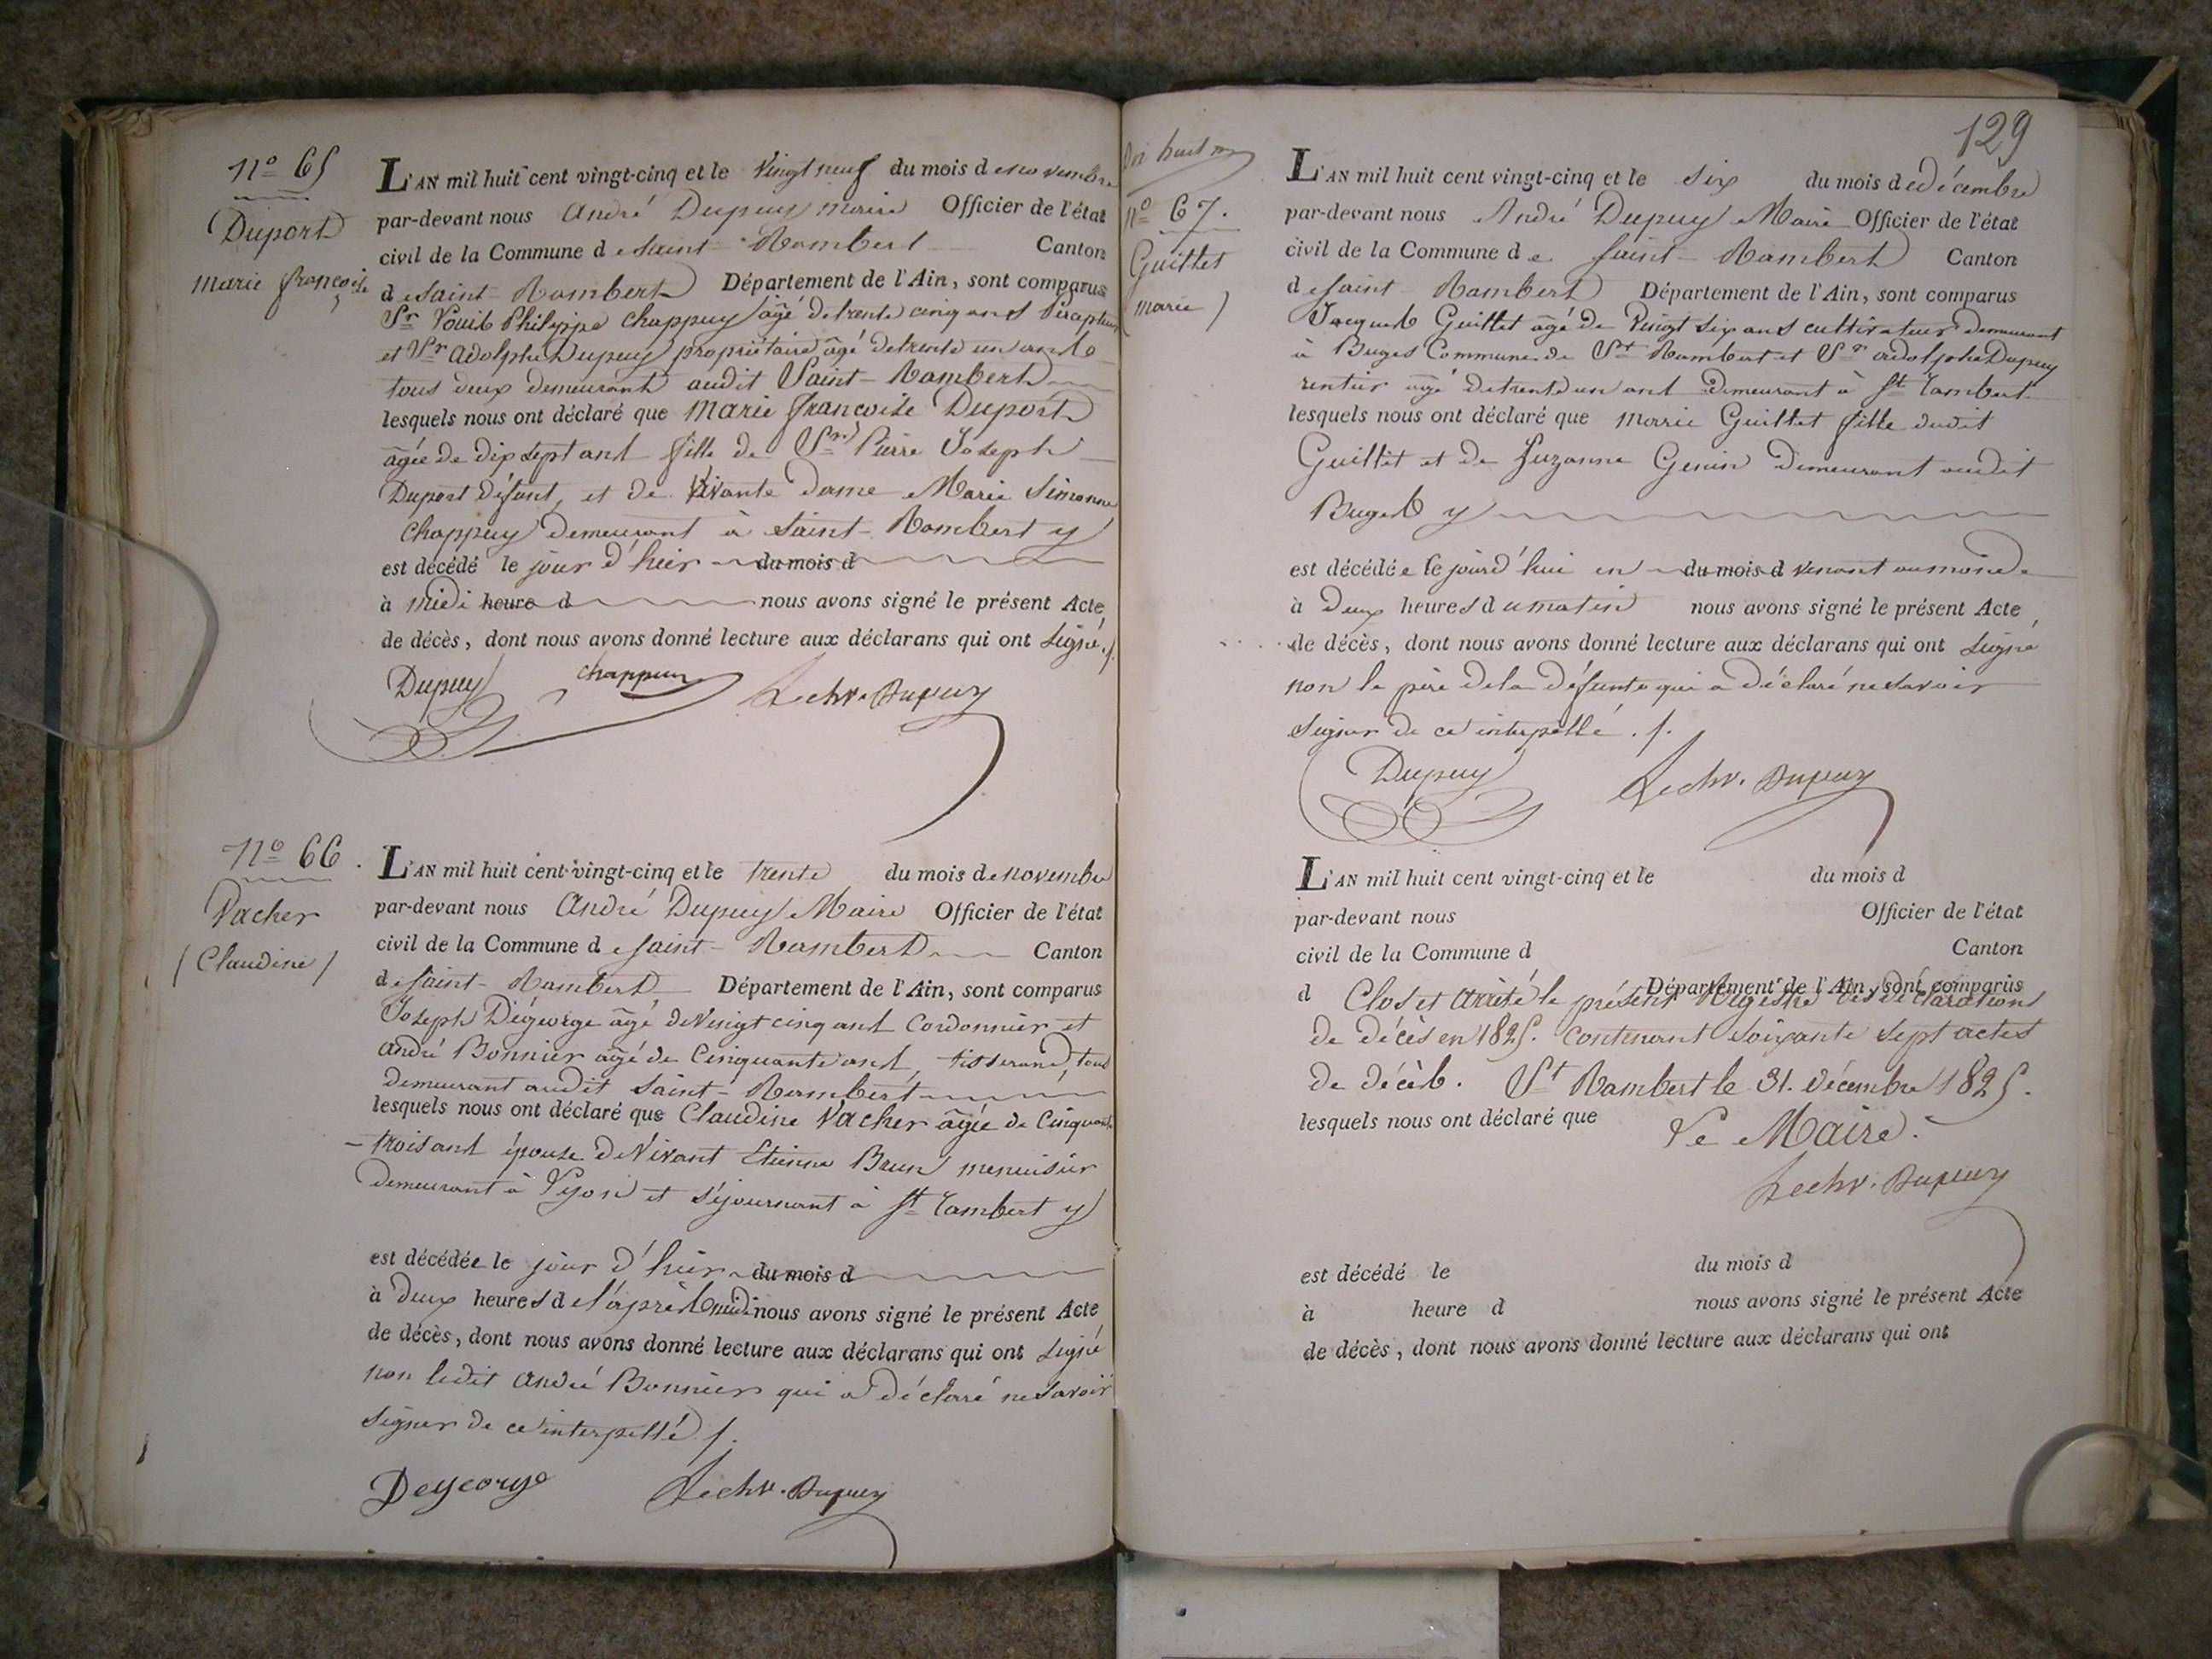 n° 65
Duport
marie françoise
L'AN mil huit cent vingt-cinq et le vingt neuf du mois de novembre
par-devant nous André Dupuy maire Officier de l'état
civil de la Commune de Saint-Rambert Canton
de Saint-Rambert Département de l'Ain, sont comparus
Sr Louis Philippe Chappuy âgé de trente cinq ans percepteur
et Sr adolphe Dupuy propriétaire âgé de trente un ans
tous deux demeurant audit Saint-Rambert
lesquels nous ont déclaré que Marie françoise Duport
âgée de dix sept ans fille de Sr Pierre Joseph
Duport défunt, et de vivante dame Marie Simonne
Chappuy demeurant à Saint-Rambert y
est décédé le jour d'hier du mois d
à midi heure d nous avons signé le présent Acte
de décès, dont nous avons donné lecture aux déclarans qui ont signé ./.
Dupuy Chappuy Le chr. Dupuy
n° 66.
Vacher
(Claudine)
L'AN mil huit cent vingt-cinq et le trente du mois de novembre
par-devant nous André Dupuy Maire Officier de l'état
civil de la Commune de Saint-Rambert Canton
de Saint-Rambert Département de l'Ain, sont comparus
Joseph Dégeorge âgé de vingt cinq ans Cordonnier et
andré Bonnier âgé de Cinquante ans, tisserand, tous
demeurant audit Saint-Rambert
lesquels nous ont déclaré que Claudine Vacher âgée de Cinquante
-trois ans épouse de vivant Etienne Brun menuisier
demeurant à Lyon et séjournant à St Rambert y
est décédée le jour d'hier du mois d
à deux heures de l'après midi nous avons signé le présent Acte
de décès, dont nous avons donné lecture aux déclarans qui ont signé
non ledit André Bonnier qui a déclaré ne savoir
signer de ce interpellé ./.
Degeorge Le chr. Dupuy
129
n° 67.
Guillet
(marie)
L'AN mil huit cent vingt-cinq et le six du mois de décembre
par-devant nous André Dupuy Maire Officier de l'état
civil de la Commune de Saint-Rambert Canton
de Saint Rambert Département de l'Ain, sont comparus
Jacques Guillet âgé de vingt six ans cultivateur demeurant
à Buges Commune de St Rambert et Sr adolphe Dupuy
rentier âgé de trente un ans demeurant à St Rambert
lesquels nous ont déclaré que Marie Guillet fille dudit
Guillet et de Suzanne Genin demeurant audit
Buges y
est décédée le jour d'hui en du mois d venant au monde
à deux heures du matin nous avons signé le présent Acte
de décès, dont nous avons donné lecture aux déclarans qui ont signé
non le père de la défunte qui a déclaré ne savoir
signer de ce interpellé ./.
Dupuy Le chr. Dupuy
L'AN mil huit cent vingt-cinq et le du mois d
par-devant nous Officier de l'état
civil de la Commune d Canton
d Département de l'Ain, sont comparus
Clos et arrêté le présent Registre des déclarations
de décès en 1825. contenant soixante sept actes
de décès. St Rambert le 31. décembre 1825.
lesquels nous ont déclaré que
Le Maire.
Le chr. Dupuy
est décédé le du mois d
à heure d nous avons signé le présent Acte
de décès, dont nous avons donné lecture aux déclarans qui ont